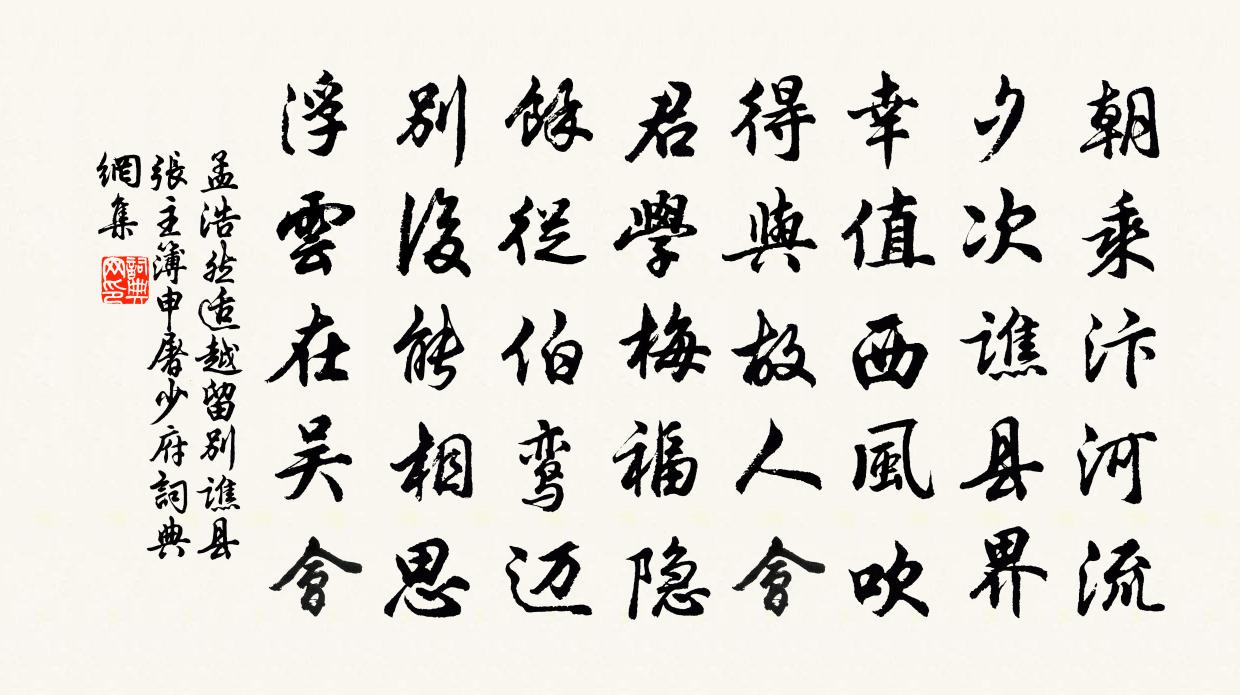 朝乘汴河流
夕次譙县界
幸值西風吹
得與故人會
君學梅福隐
餘從伯鸾迈
別後能相思
浮雲在吴會
孟浩然适越留別譙县
張主簿申屠少府詞典
網集
詞典網印